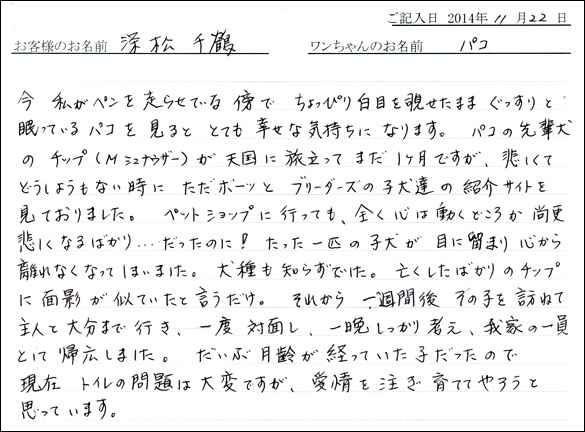 ご記入日 2014年 11 月 22 日
お客様のお名前 深松 千鶴 ワンちゃんのお名前 パコ
今 私がペンを走らせている傍で ちょっぴり白目を覗せたまま ぐっすりと
眠っているパコを見ると とても幸せな気持ちになります。 パコの先輩犬
のチップ(Mシュナウザー)が天国に旅立ってまだ1ヶ月ですが、悲しくて
どうしようもない時に ただボーッと ブリーダーズの子犬達の紹介サイトを
見ておりました。 ペットショップに行っても、全く心は動くどころか 尚更
悲しくなるばかり....だったのに! たった一匹の子犬が 目に留まり 心から
離れなくなってしまいました。 犬種も知らずでした。 亡くしたばかりのチップ
に面影が似ていたと言うだけ。 それから 一週間後 その子を訪ねて
主人と大分まで行き、一度 対面し、一晩しっかり考え、我家の一員
として 帰広しました。 だいぶ月齢が経っていた子だったので
現在 トイレの問題は大変ですが、愛情を注ぎ育ててやろうと
思っています。